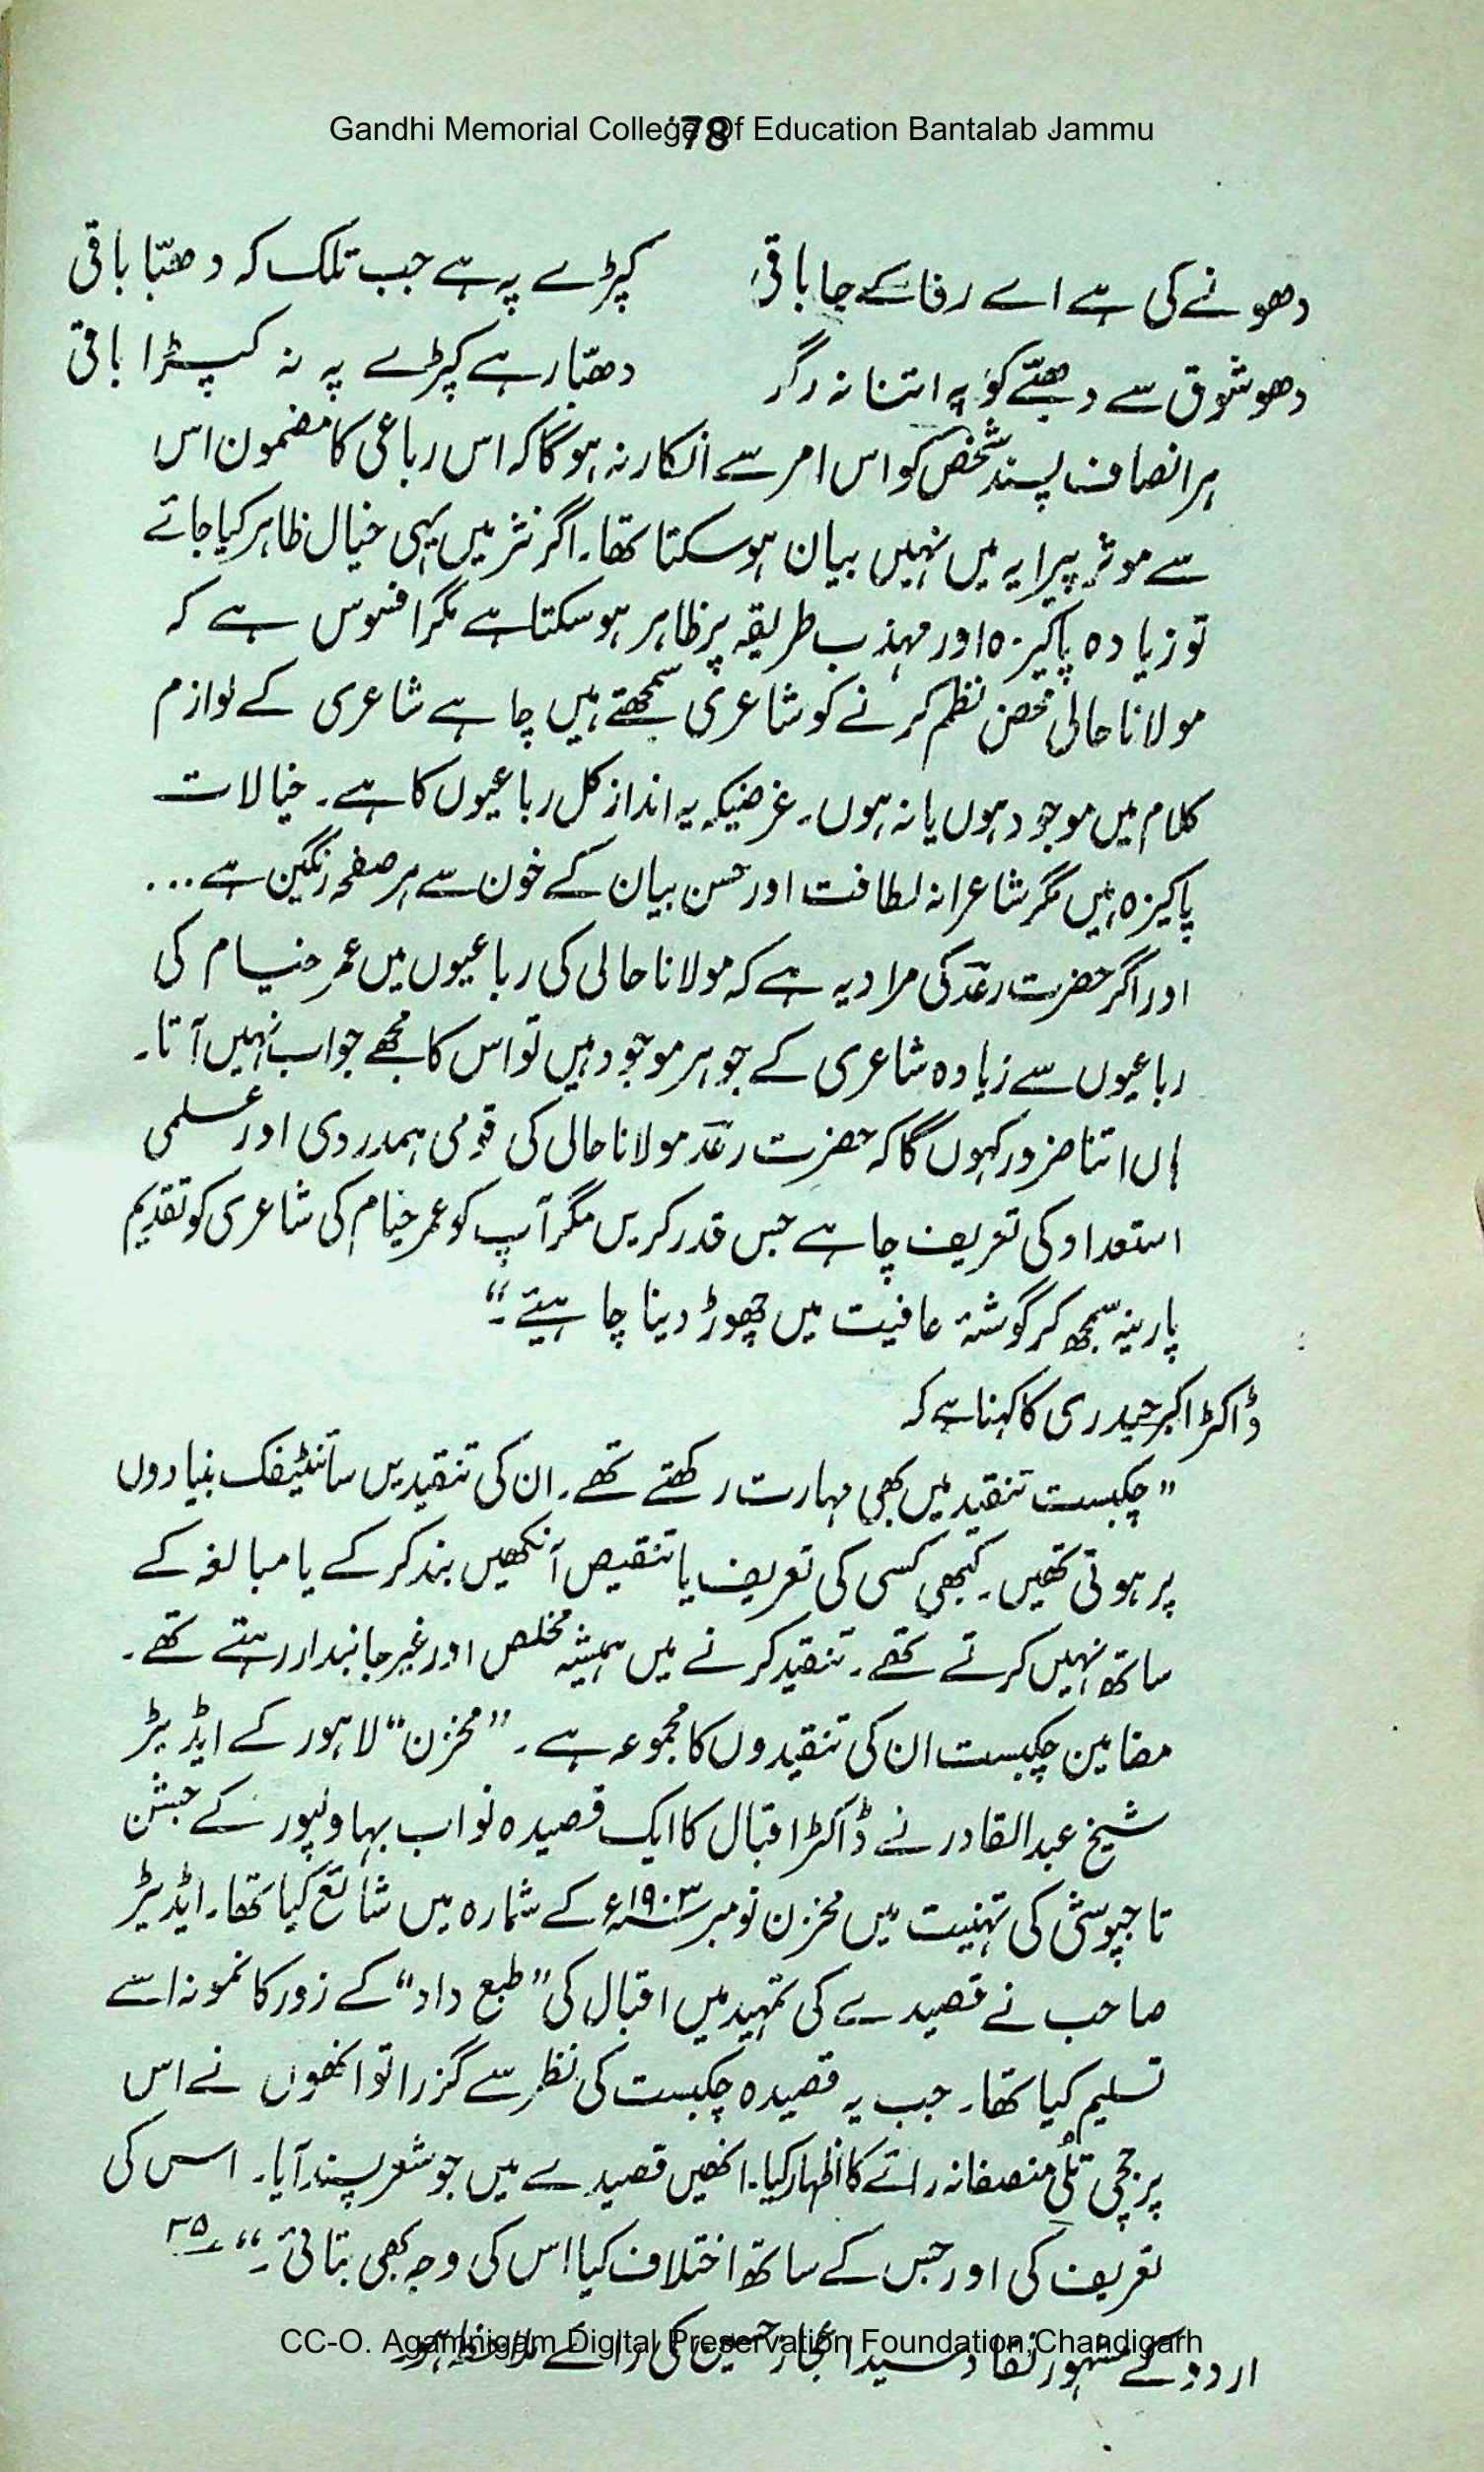 Gandhi Memorial College Of Education Bantalab Jammu
78
دھونے کی ہے اے رفا کے جا باقی کپڑے پہ ہے جب تلک کہ دھبّا باقی
دھو شوق سے دھبّے کو پہ اتنا نہ رگڑ دھبّا رہے کپڑے پہ نہ کپڑا باقی
ہر انصاف پسند شخص کو اس امر سے انکار نہ ہوگا کہ اس رباعی کا مضمون اس
سے موثر پیرایہ میں نہیں بیان ہوسکتا تھا۔ اگر نثر میں یہی خیال ظاہر کیا جائے
تو زیادہ پاکیزہ اور مہذب طریقہ پر ظاہر ہوسکتا ہے مگر افسوس ہے کہ
مولانا حالی محض نظم کرنے کو شاعری سمجھتے ہیں چاہے شاعری کے لوازم
کلام میں موجود ہوں یا نہ ہوں۔ غرضیکہ یہ انداز کل رباعیوں کا ہے۔ خیالات
پاکیزہ ہیں مگر شاعرانہ لطافت اور حسن بیان کے خون سے ہر صفحہ رنگین ہے ...
اور اگر حضرت رعدؔ کی مراد یہ ہے کہ مولانا حالی کی رباعیوں میں عمر خیام کی
رباعیوں سے زیادہ شاعری کے جوہر موجود ہیں تو اس کا مجھے جواب نہیں آتا۔
ہاں اتنا ضرور کہوں گا کہ حضرت رعدؔ مولانا حالی کی قومی ہمدردی اور علمی
استعداد کی تعریف چاہے جس قدر کریں مگر آپ کو عمر خیام کی شاعری کو تقدیم
پارینہ سمجھ کر گوشۂ عافیت میں چھوڑ دینا چاہیئے۔“
ڈاکٹر اکبر حیدری کا کہنا ہے کہ
”چکبست تنقید میں بھی مہارت رکھتے تھے۔ ان کی تنقیدیں سائنٹیفک بنیادوں
پر ہوتی تھیں۔ کبھی کسی کی تعریف یا تنقیص آنکھیں بند کرکے یا مبالغہ کے
ساتھ نہیں کرتے تھے۔ تنقید کرنے میں ہمیشہ مخلص اور غیر جانبدار رہتے تھے۔
مضامین چکبست ان کی تنقیدوں کا مجموعہ ہے۔ ”مخزن“ لاہور کے ایڈیٹر
شیخ عبدالقادر نے ڈاکٹر اقبال کا ایک قصیدہ نواب بہاولپور کے جشن
تاجپوشی کی تہنیت میں مخزن نومبر ۱۹۰۳ء کے شمارہ میں شائع کیا تھا۔ ایڈیٹر
صاحب نے قصیدے کی تمہید میں اقبال کی ”طبع داد“ کے زور کا نمونہ اسے
تسلیم کیا تھا۔ جب یہ قصیدہ چکبست کی نظر سے گزرا تو انھوں نے اس
پر جچی تلُی منصفانہ رائے کا اظہار کیا۔ انھیں قصیدے میں جو شعر پسند آیا۔ اس کی
تعریف کی اور جس کے ساتھ اختلاف کیا اس کی وجہ بھی بتائی۔“ ۳۵
اردو کے مشہور نقاد سید اعجاز حسین کی رائے ملاحظہ ہو۔
CC-O. Agamnigam Digital Preservation Foundation,Chandigarh